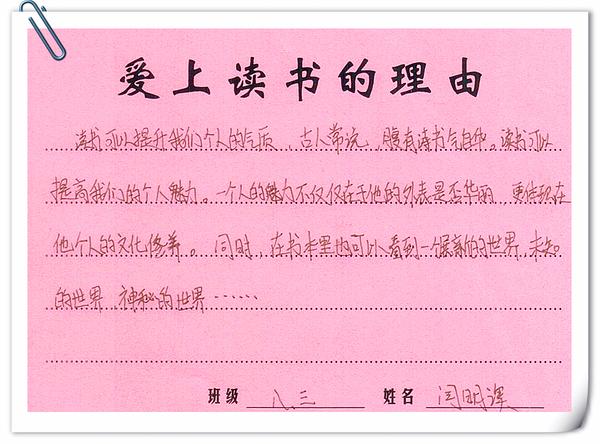 爱上读书的理由
读书可以提升我们个人的气质，古人常说，腹有诗书气自华。读书可以
提高我们的个人魅力。一个人的魅力不仅仅在于他的外表是否华丽，更体现在
他个人的文化修养。同时，在书本里也可以看到一个崭新的世界，未知
的世界，神秘的世界……
班级 八、三 姓名 闫明